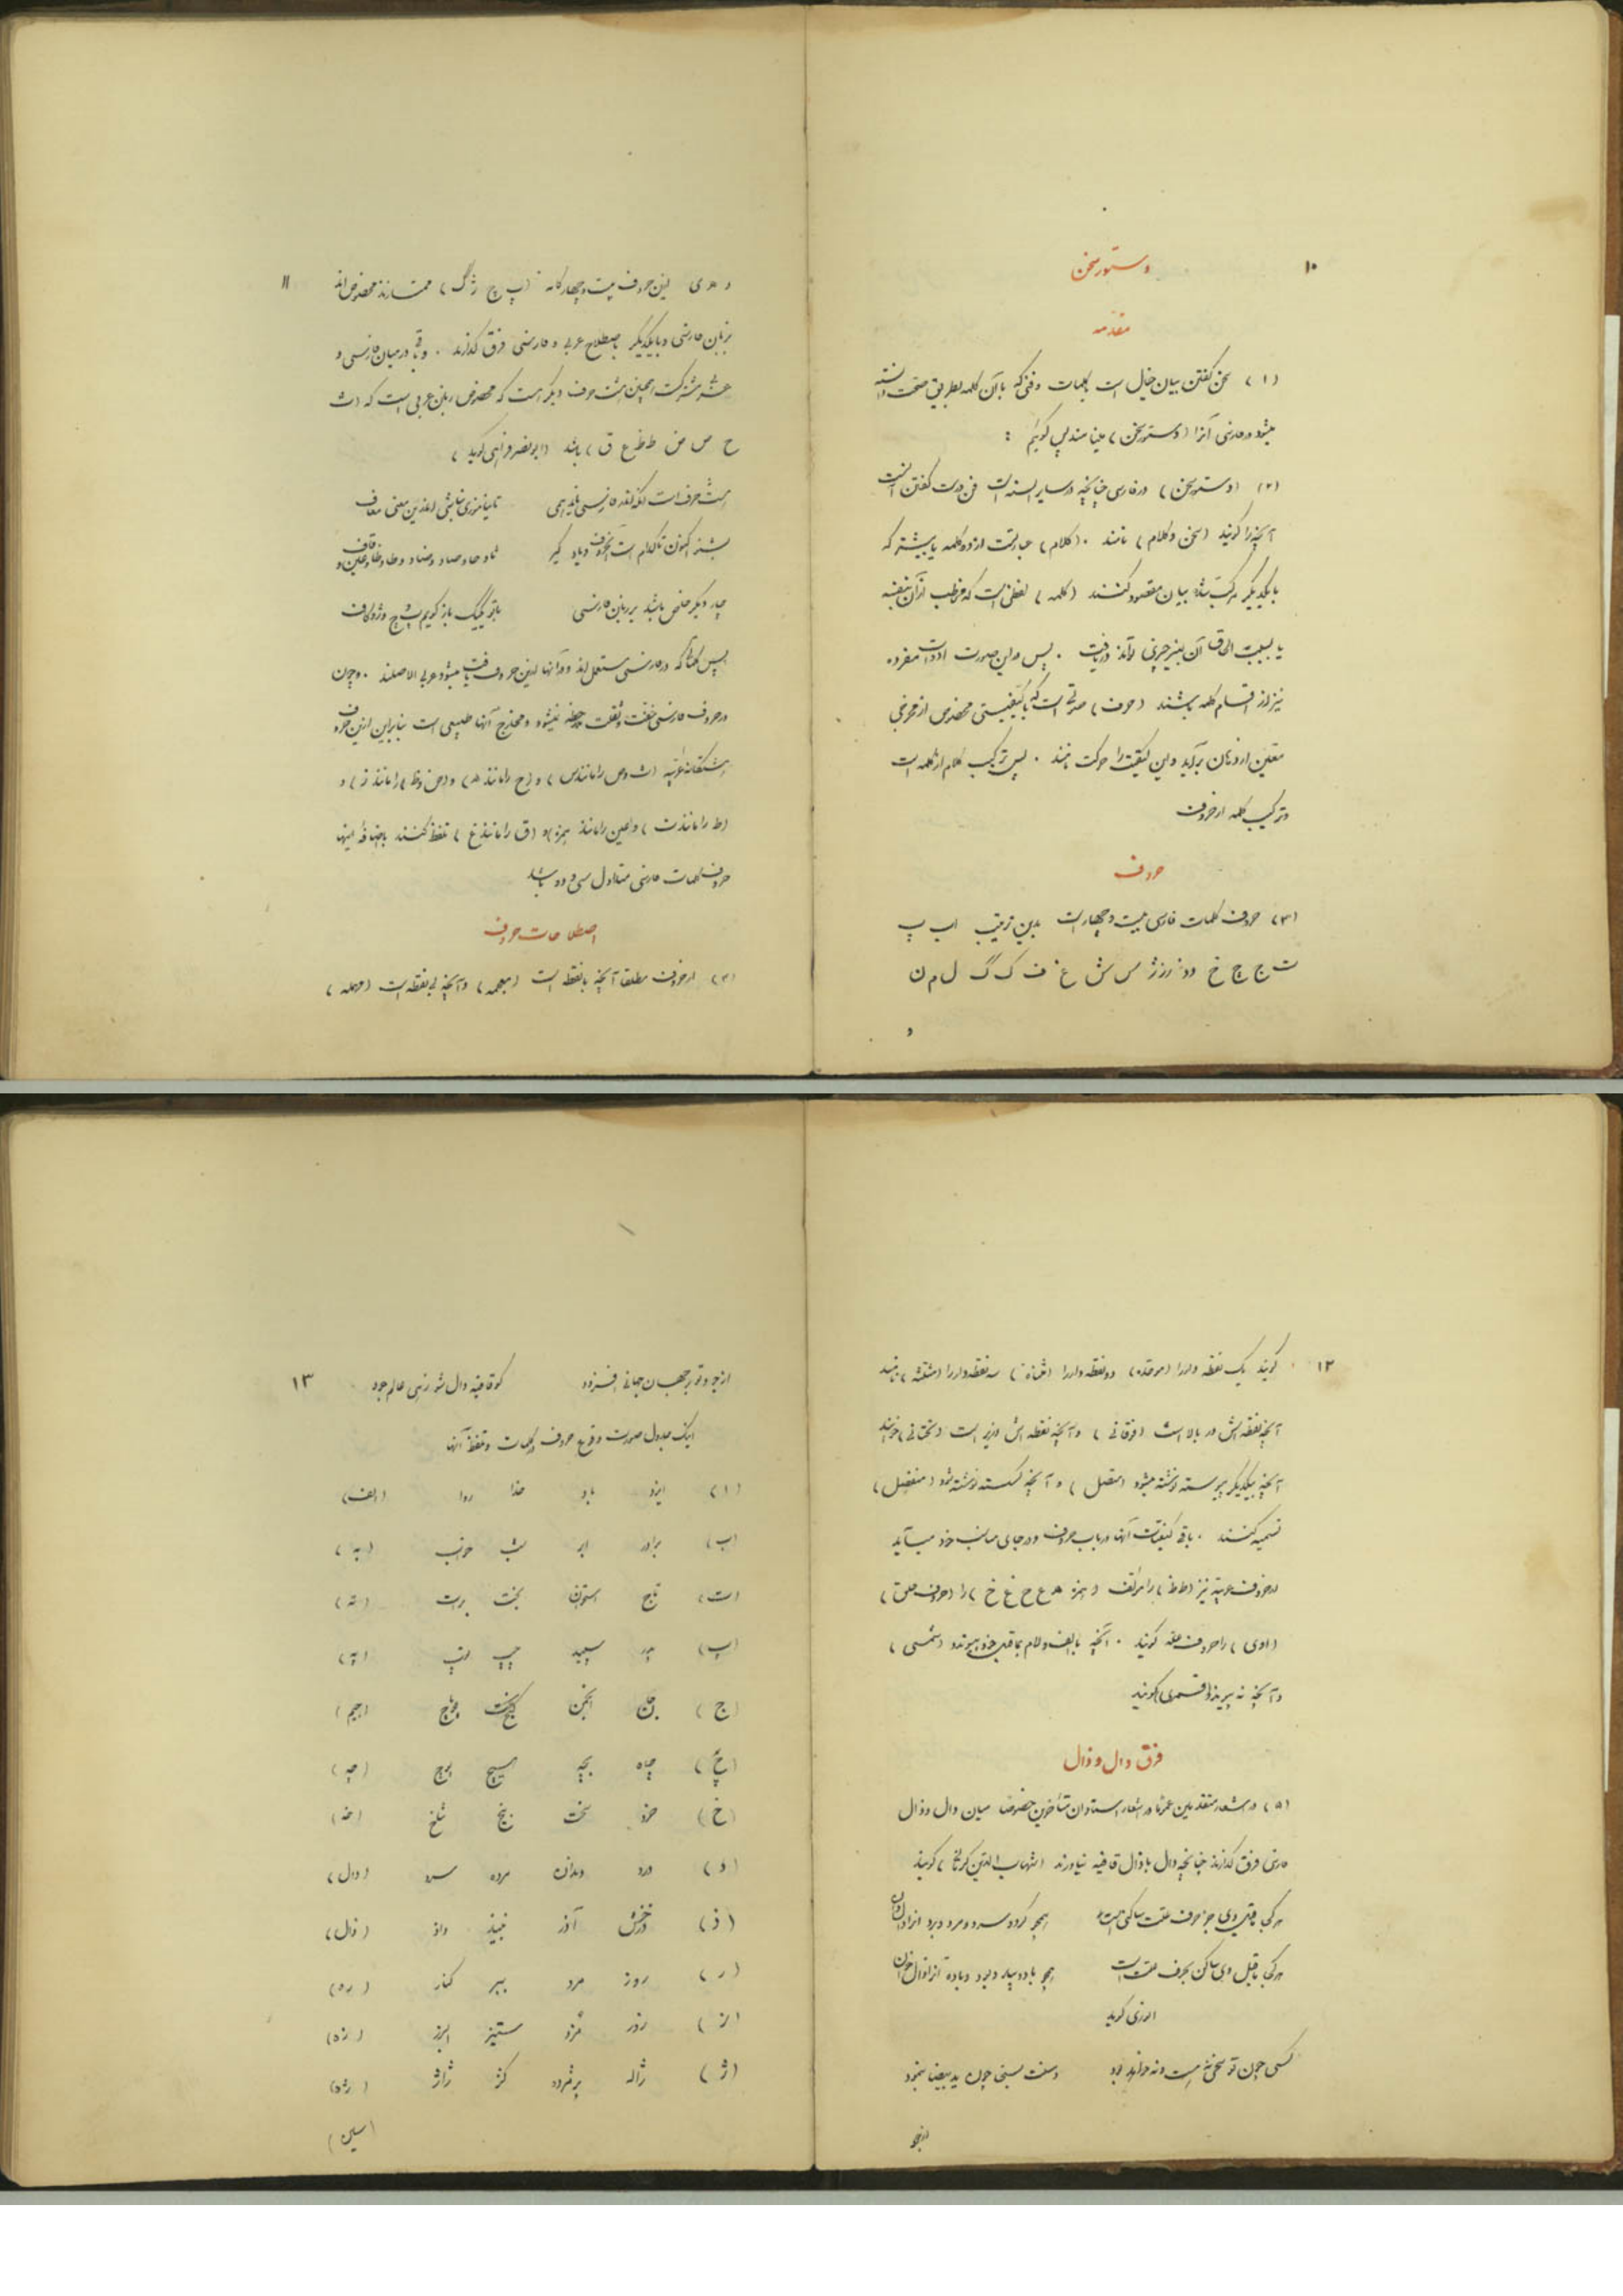 ۱۰
دستور سخن
مقدمه
(۱) سخن گفتن بیان خیال است بکلمات و فنی که بآن کلمه بطریق صحت دانسته
میشود در فارسی آنرا (دستور سخن) مینامند پس گوئیم :
(۲) (دستور سخن) در فارسی چنانچه در سایر السنه است فن درست گفتن است
آنچه را گویند (سخن و کلام) نامند . (کلام) عبارتست از دو کلمه یا بیشتر که
با یکدیگر مرکب شده بیان مقصود کنند (کلمه) لفظی است که مخاطب از آن بنفسه
یا بسبب الحاق آن بغیر چیزی تواند دریافت . پس در این صورت ادات مفرده
نیز از اقسام کلمه باشند (حرف) صوتی است که با کیفیتی مخصوص از مخرجی
معین از دهان برآید و این کیفیت را حرکت نامند . پس ترکیب کلام از کلمه است
و ترکیب کلمه از حروف
حروف
(۳) حروف کلمات فارسی بیست و چهار است بدین ترتیب ا ب پ
ت ج چ خ د ذ ر ز ژ س ش غ ف ک گ ل م ن
و
۱۱
و ه ی این حروف بیست و چهارگانه (پ چ ژ گ) ممتازند مخصوص اند
بزبان فارسی و با یکدیگر باصطلاح عربی و فارسی فرق گذارند . و باقی در میان فارسی و
مشترکست همچنین هشت حرف دیگر هست که مخصوص زبان عربی است که (ث
ح ص ض ط ظ ع ق) باشد (ابو نصر فراهی گوید)
هشت حرف است آنکه اندر فارسی ناید همی
تا نیاموزی نباشی اندرین معنی معاف
بشنو اکنون تا کدام است آن حروف و یاد گیر
ثا و حا و صاد و ضاد و طا و ظا و عین و قاف
چار دیگر خاص باشد بر زبان فارسی
با تو یک یک باز گویم پ و چ و ژ و گاف
پس کلماتی که در فارسی مستعمل اند و در آنها این حروف یافت میشود عربی الاصلند . و چون
در حروف فارسی خفت و ثقلت ملاحظه نمیشود و مخارج آنها طبیعی است بنابراین ازین حروف
هشتگانه عربیه (ث و ص را مانند س) و (ح را مانند ه) و (ض و ظ را مانند ز) و
(ط را مانند ت) و (عین را مانند همزه) و (ق را مانند غ) تلفظ کنند باضافه اینها
حروف کلمات فارسی متداول سی و دو باشد
اصطلاحات حروف
(۴) از حروف مطلقا آنچه با نقطه است (معجمه) و آنچه بی نقطه است (مهمله)
۱۲
گویند یک نقطه دار را (موحده) دو نقطه دار را (مثناة) سه نقطه دار را (مثلثه) نامند
آنچه نقطه اش در بالا است (فوقانی) و آنچه نقطه اش در زیر است (تحتانی) خوانند
آنچه بیکدیگر پیوسته نوشته میشود (متصل) و آنچه گسسته نوشته شود (منفصل)
تسمیه کنند . باقی کیفیات آنها در باب حروف و در جای مناسب خود میآید
از حروف عربیه نیز (ط ظ) را مؤلف و (همزه ه ع ح غ خ) را (حروف حلق)
(اوی) را حروف عله گویند . آنچه با الف و لام بماقبل خود بپیوندد (شمسی)
و آنچه نه پیوندد (قمری) گویند
فرق دال و ذال
(۵) در اشعار متقدمین عموما در اشعار استادان متأخرین خصوصا میان دال و ذال
فارسی فرق گذارند چنانچه دال با ذال قافیه نیاورند (شهاب الدین کرمانی) گویند
هر کجا ماقبل وی جز حرف علت ساکنی است
همچو کرد و سرد و مرد و درد آنرا دال دان
هر کجا ماقبل وی ساکن بحرف علت است
همچو باد و بید و بود و باده آنرا ذال خوان
انوری گوید
کسی چون تو سخی نه هست و نه خواهد بود
دست سخی چون ید بیضا بنمود
از جو
۱۳
از جود تو بر جهان جهانی افزود
گو قافیه دال شو زهی عالم جود
اینک جدول صورت وقوع حروف در کلمات و تلفظ آنها
(ا) ایزد باد خدا روا (الف)
(ب) برادر ابر شب خوب (به)
(ت) تاج استوان بخت برات (ته)
(پ) پدر سپید چپ توپ (په)
(ج) جان انجمن گنج (جیم)
(چ) چاه بچه بسیج پوچ (چه)
(خ) خرد سخت یخ شاخ (خه)
(د) درد دندان مرده سرد (دال)
(ذ) آذر نبیذ داذ (ذال)
(ر) روز مرد ببر کنار (ره)
(ز) زور مزد ستیز ابرز (زه)
(ژ) ژاله پژمرده کژ ژاژ (ژه)
(سین)